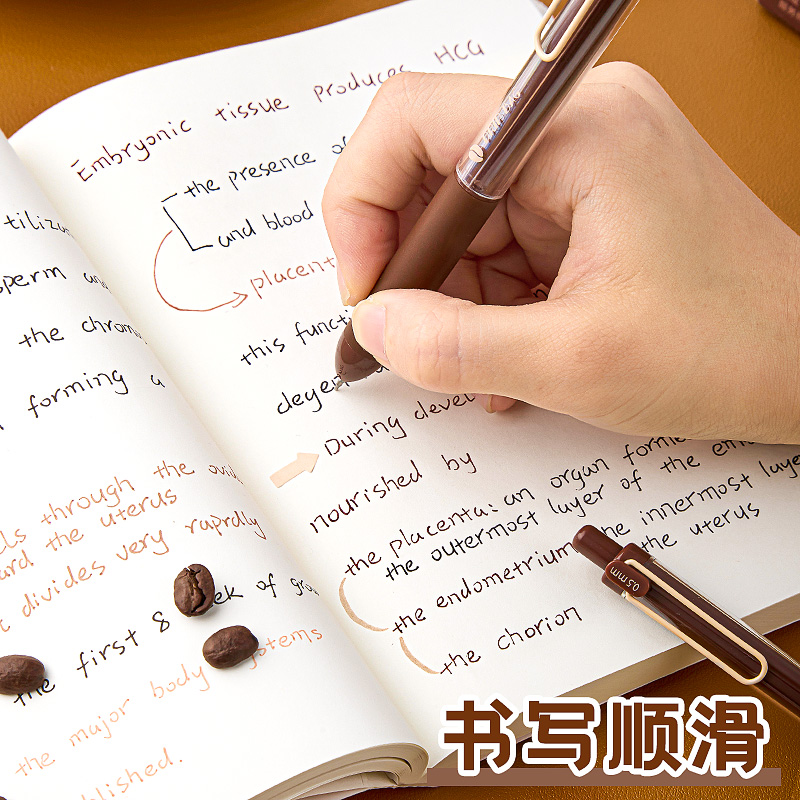 tiliza
sperm an
the chrom
forming a
through the ovid
ard the uterus
divides very raprdly
the first 8 ek of gra
the major body ystems
blished.
Embryonic tissue produces HCG
the presence of
and blood
placent
this funct
degen
During devel
nourished by
the placenta: an organ forme
the outermost layer of the en
the endometrium the innermost laye
the uterus
the chorion
0.5mm
书写顺滑